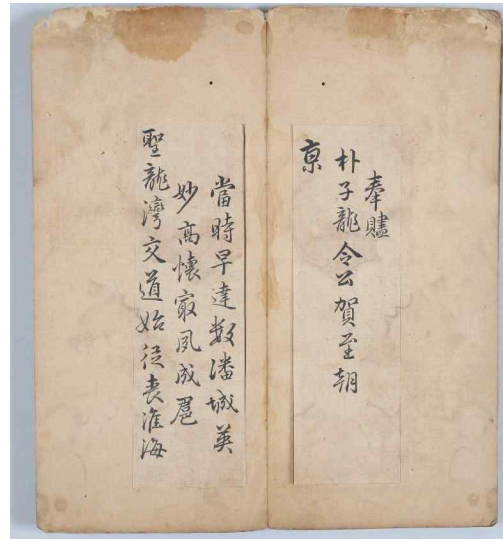 奉贐
朴子龍令公賀至朝
京
當時早達数潘城英
妙高懷㝡夙成扈
聖龍灣交道始從喪淮海